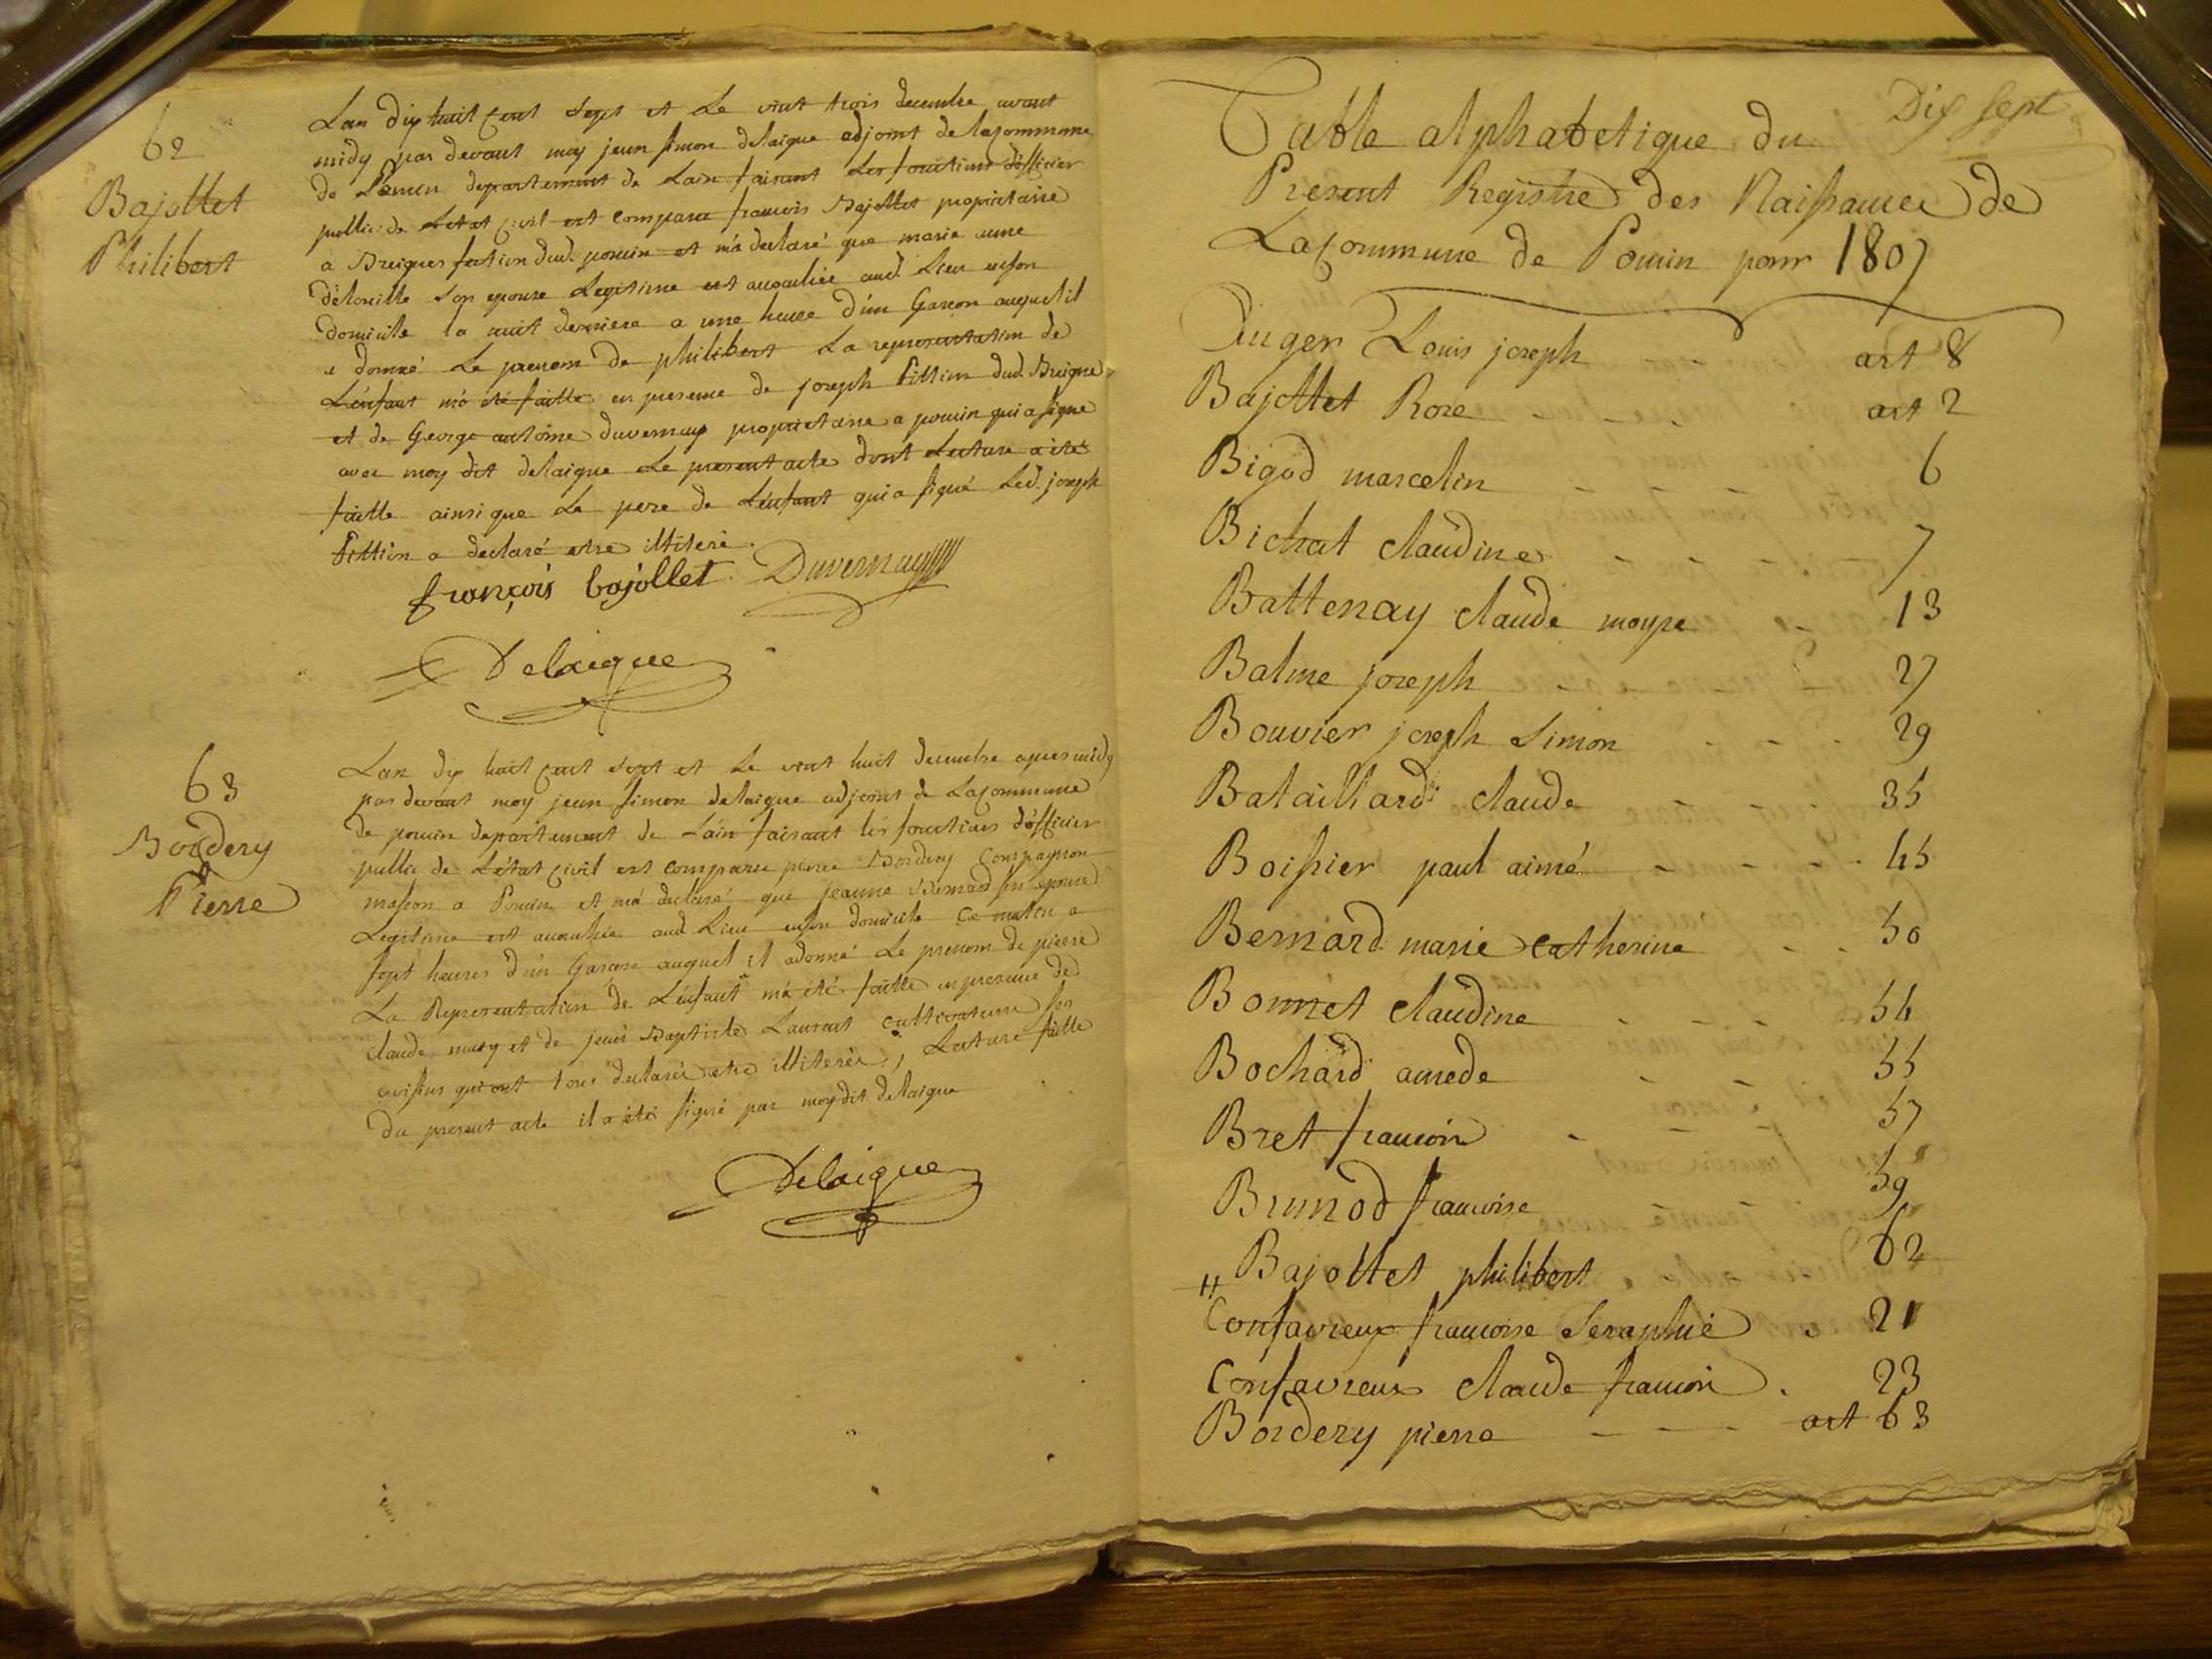 62
Bajollet
Philibert
Lan dix huit cent sept et Le vint trois decembre avant
midy par devant moy jean simon delaigue adjoint de lacommune
de Poncin departement de Lain faisant Les fonctions d'officier
public de Letat civil est comparu francois Bajollet proprietaire
a Breignes section dud. poncin et m'a declaré que marie
son epouse Legitime est accouchée aud. Lieu enson
domicile la nuit derniere a une heure d'un Garcon auquel il
a donné Le prenom de philibert La representation de
L'enfant m'a été faitte en presence de joseph Fittion dud. Breigne
et de George antoine duvernay proprietaire a poncin qui a signé
avec moy dit delaigue Le present acte dont Lecture a été
faitte ainsi que Le pere de L'enfant qui a signé Led. joseph
Fittion a declaré etre illiteré.
françois bajollet Duvernay
Delaigue
63
Bordery
Pierre
Lan dix huit cent sept et Le vint huit decembre apres midy
par devant moy jean simon delaigue adjoint de Lacommune
de poncin departement de Lain faisant les fonctions d'officier
public de L'état civil est comparu pierre Bordery Compagnon
masson a Poncin et m'a declaré que jeanne Bernard son epouse
Legitime est accouchée aud. Lieu enson domicile Ce matin a
sept heures d'un Garcon auquel il adonné Le prenom de pierre
La Representation de L'enfant m'a été faitte en presence de
claude mury et de jean Baptiste Laurent cultivateurs ses
voisins qui ont tous declaré etre illiterés, Lecture faitte
du present acte il a été signé par moy dit delaigue
Delaigue
Dix sept
Table alphabetique du
Present Registre des Naissances de
Lacommune de Poncin pour 1807
Auger Louis joseph art 8
Bajollet Rose art 2
Bigod marcelin 6
Bichat claudine 7
Battenay claude moyse 13
Balme joseph 27
Bouvier joseph Simon 29
Bataillard claude 35
Boissier paul aimé 45
Bernard marie catherine 50
Bonnet claudine 54
Bochard amede 55
Bret francois 57
Brunod francoise 59
Bajollet philibert 62
Confavreux francoise Seraphie 21
Confavreux claude francois 23
Bordery pierre art 63